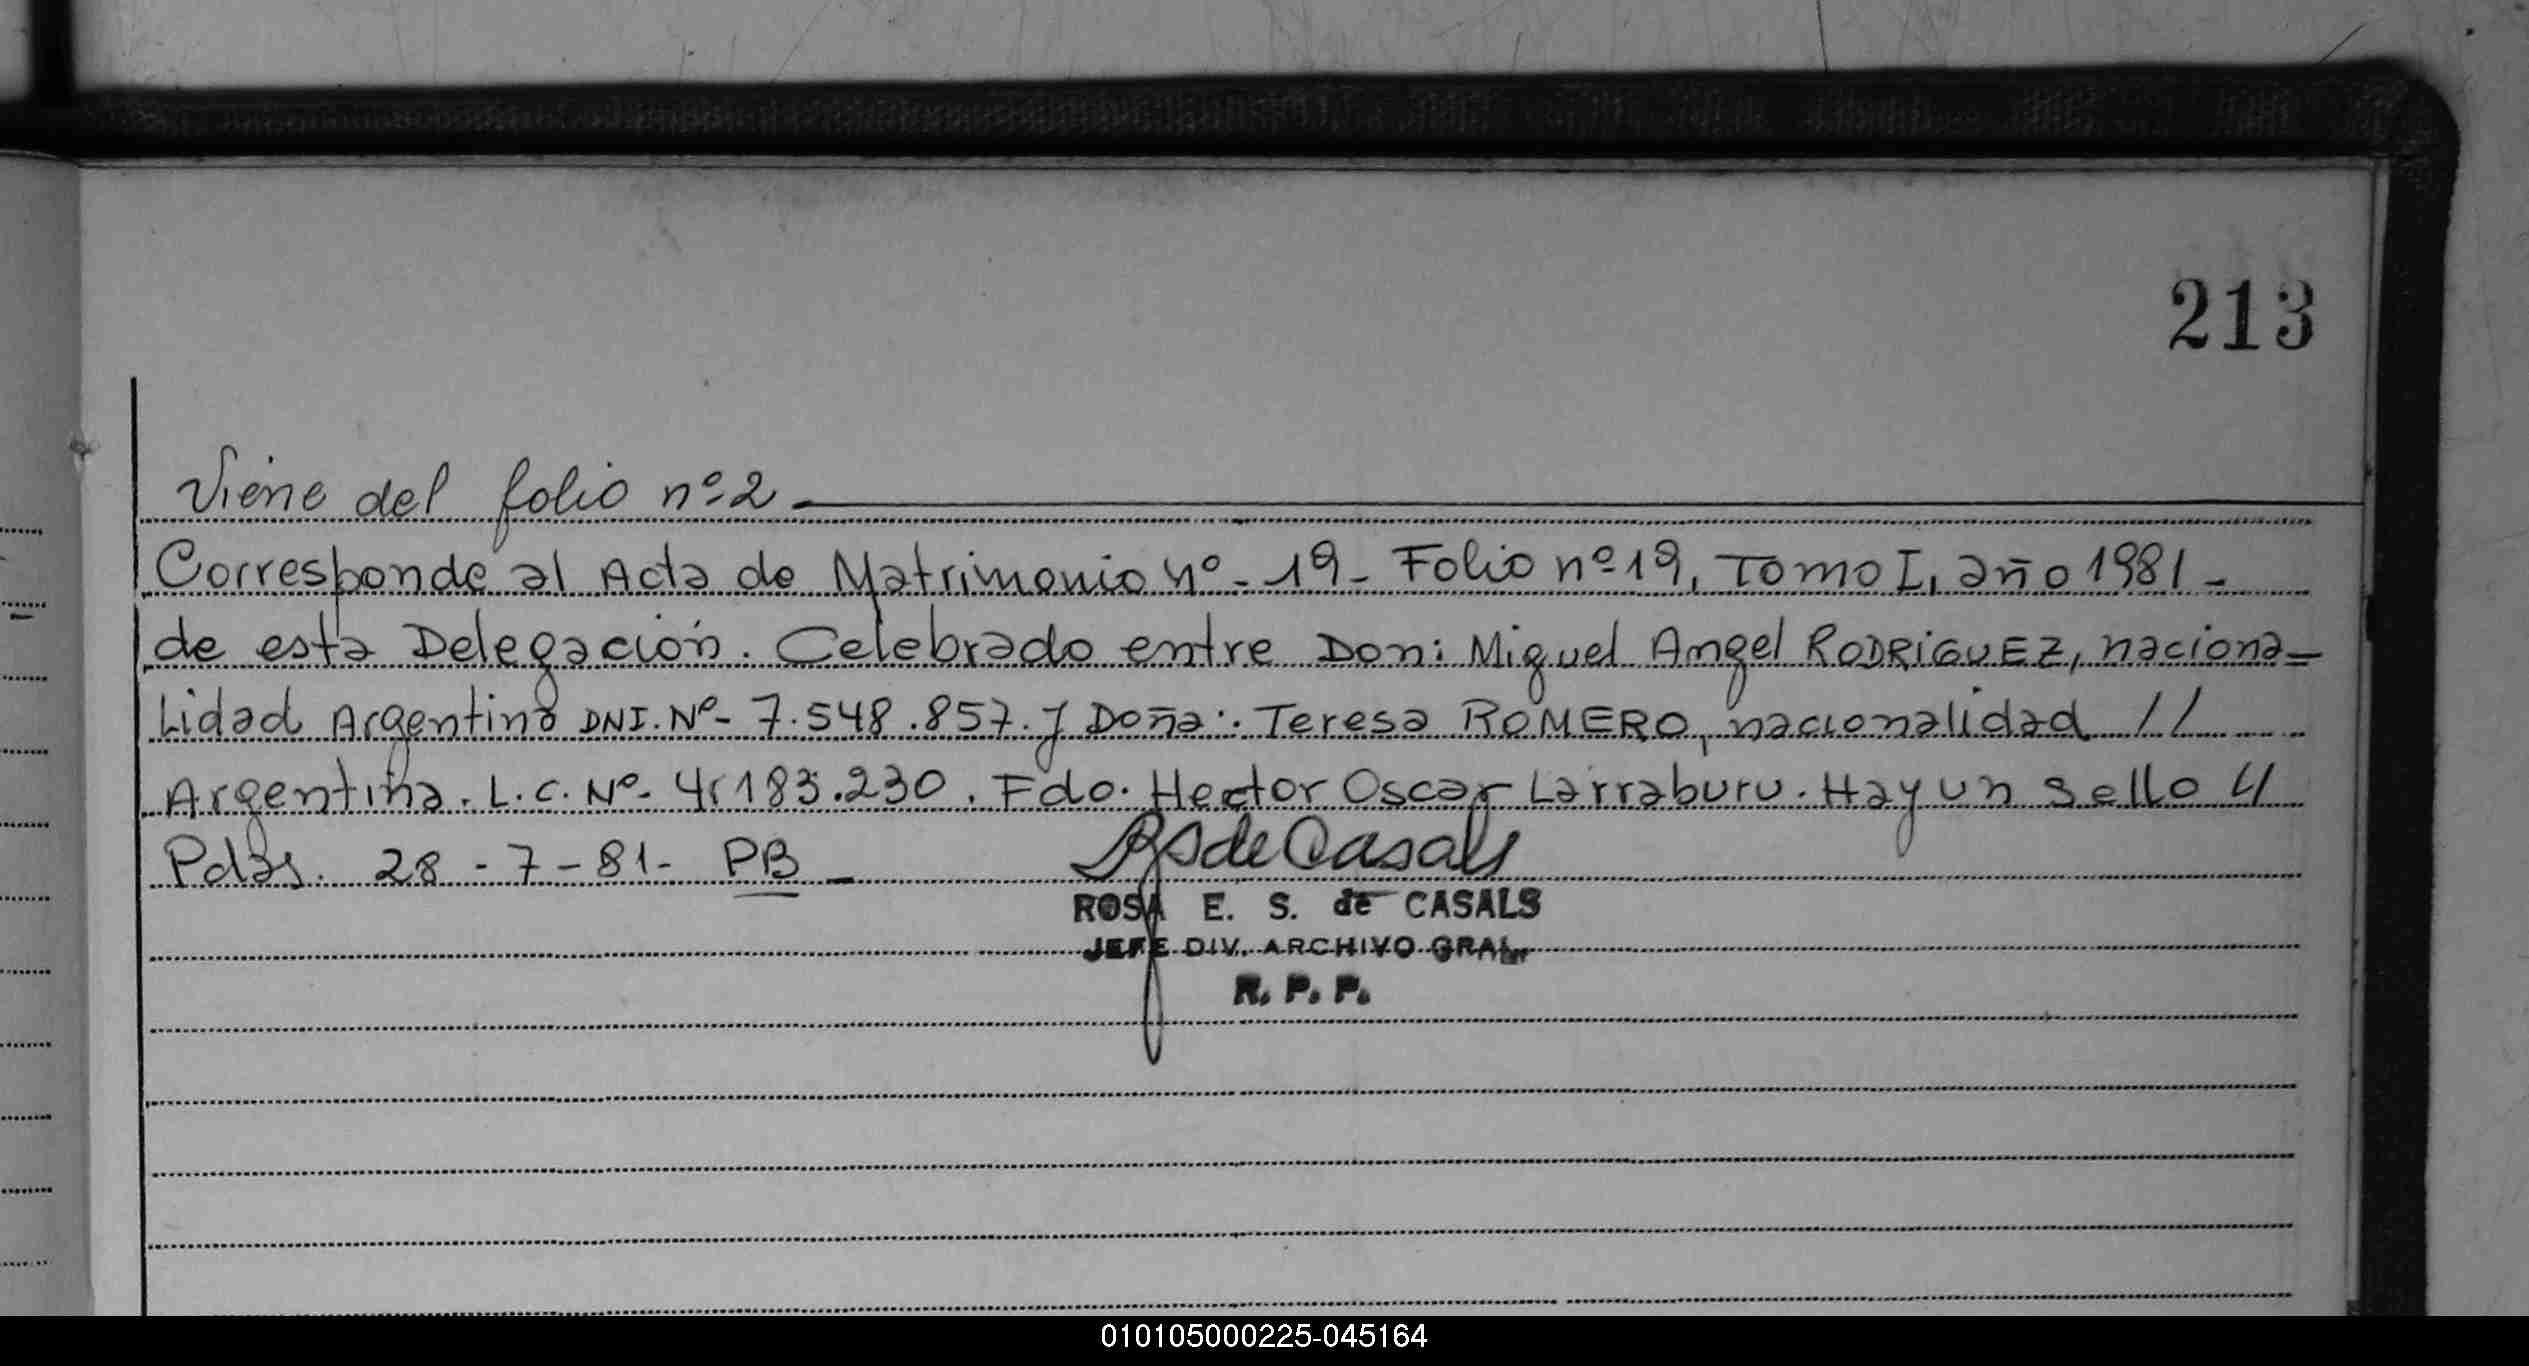 213
Viene del folio nº 2
Corresponde al Acta de Matrimonio nº - 19 - Folio nº 19, Tomo I, año 1981 -
de esta Delegación. Celebrado entre Don: Miguel Angel RODRIGUEZ, naciona-
Lidad Argentino DNI. Nº - 7.548.857. y Doña: Teresa ROMERO, nacionalidad //
Argentina. L.C. Nº - 4.183.230. Fdo. Hector Oscar Larraburu. Hay un sello //
Pdas. 28 - 7 - 81 - PB -
RS de Casals
ROSA E. S. de CASALS
JEFE DIV. ARCHIVO GRAL.
R. P. P.
010105000225-045164